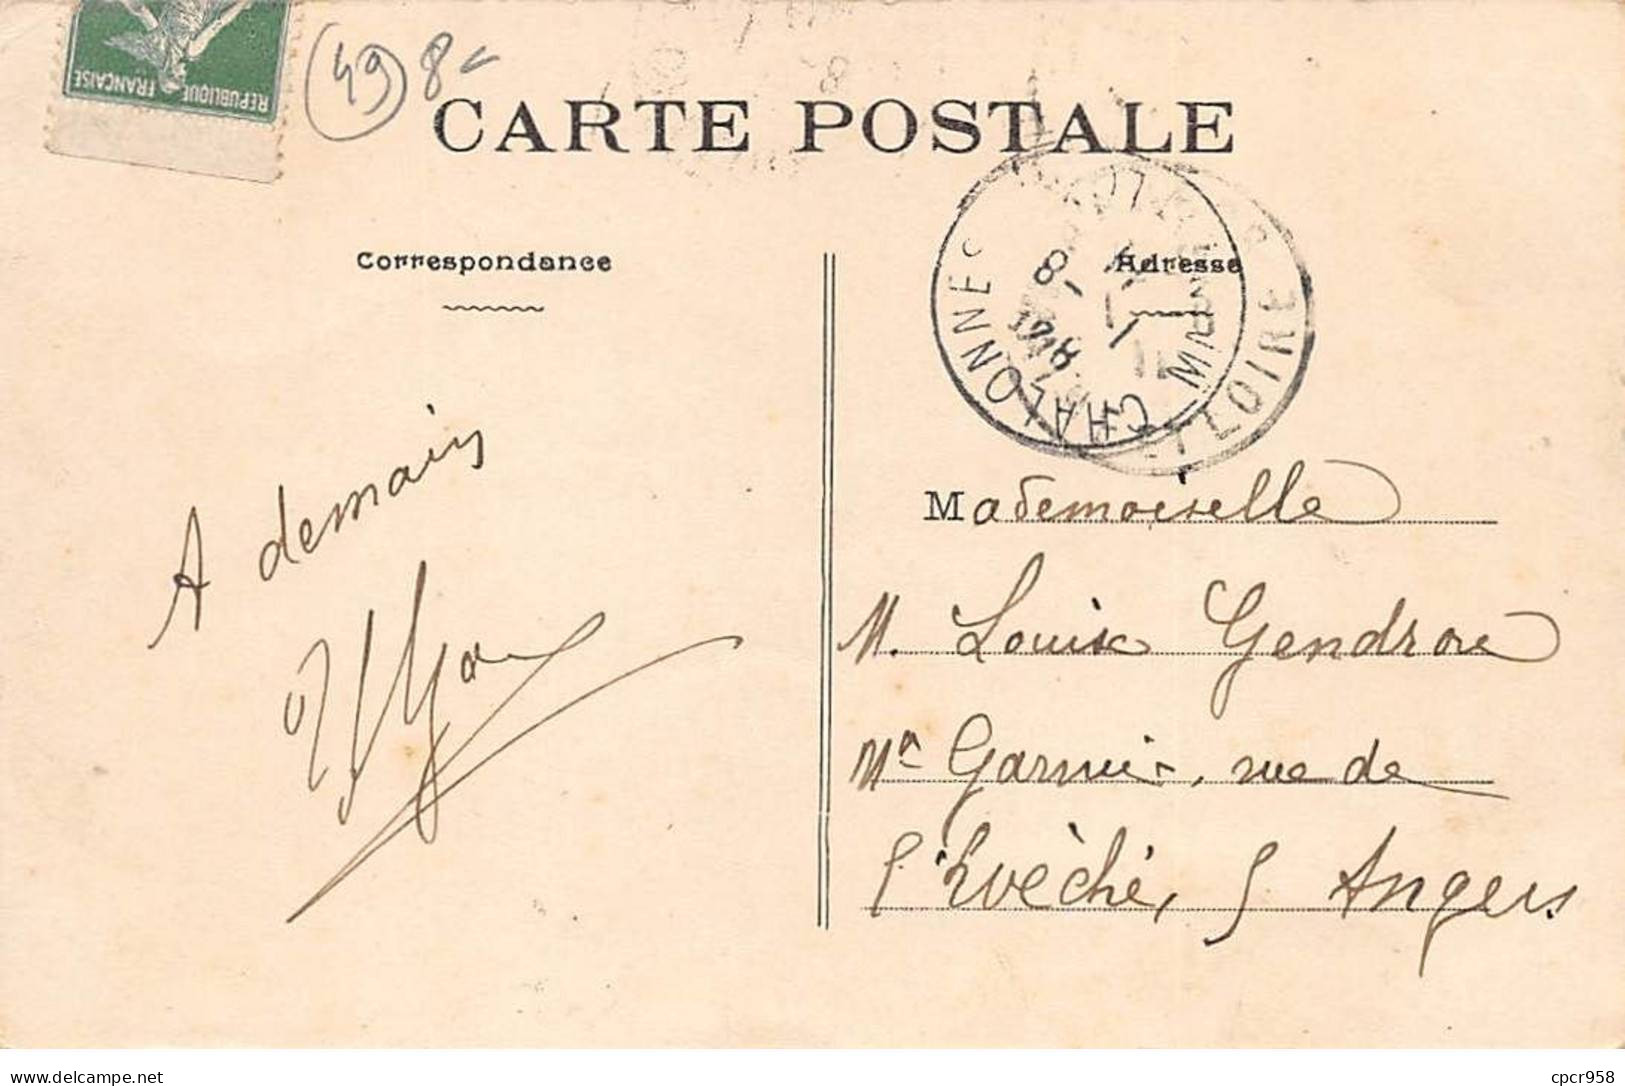 REPUBLIQUE FRANÇAISE
(49) 8-
CARTE POSTALE
Correspondance
Adresse
CHALONNES
ET LOIRE
A demain
Mademoiselle
M. Louise Gendron
Mon Garnier, rue de
l'Evêché, 5 Angers
delcampe.net
cpcr958